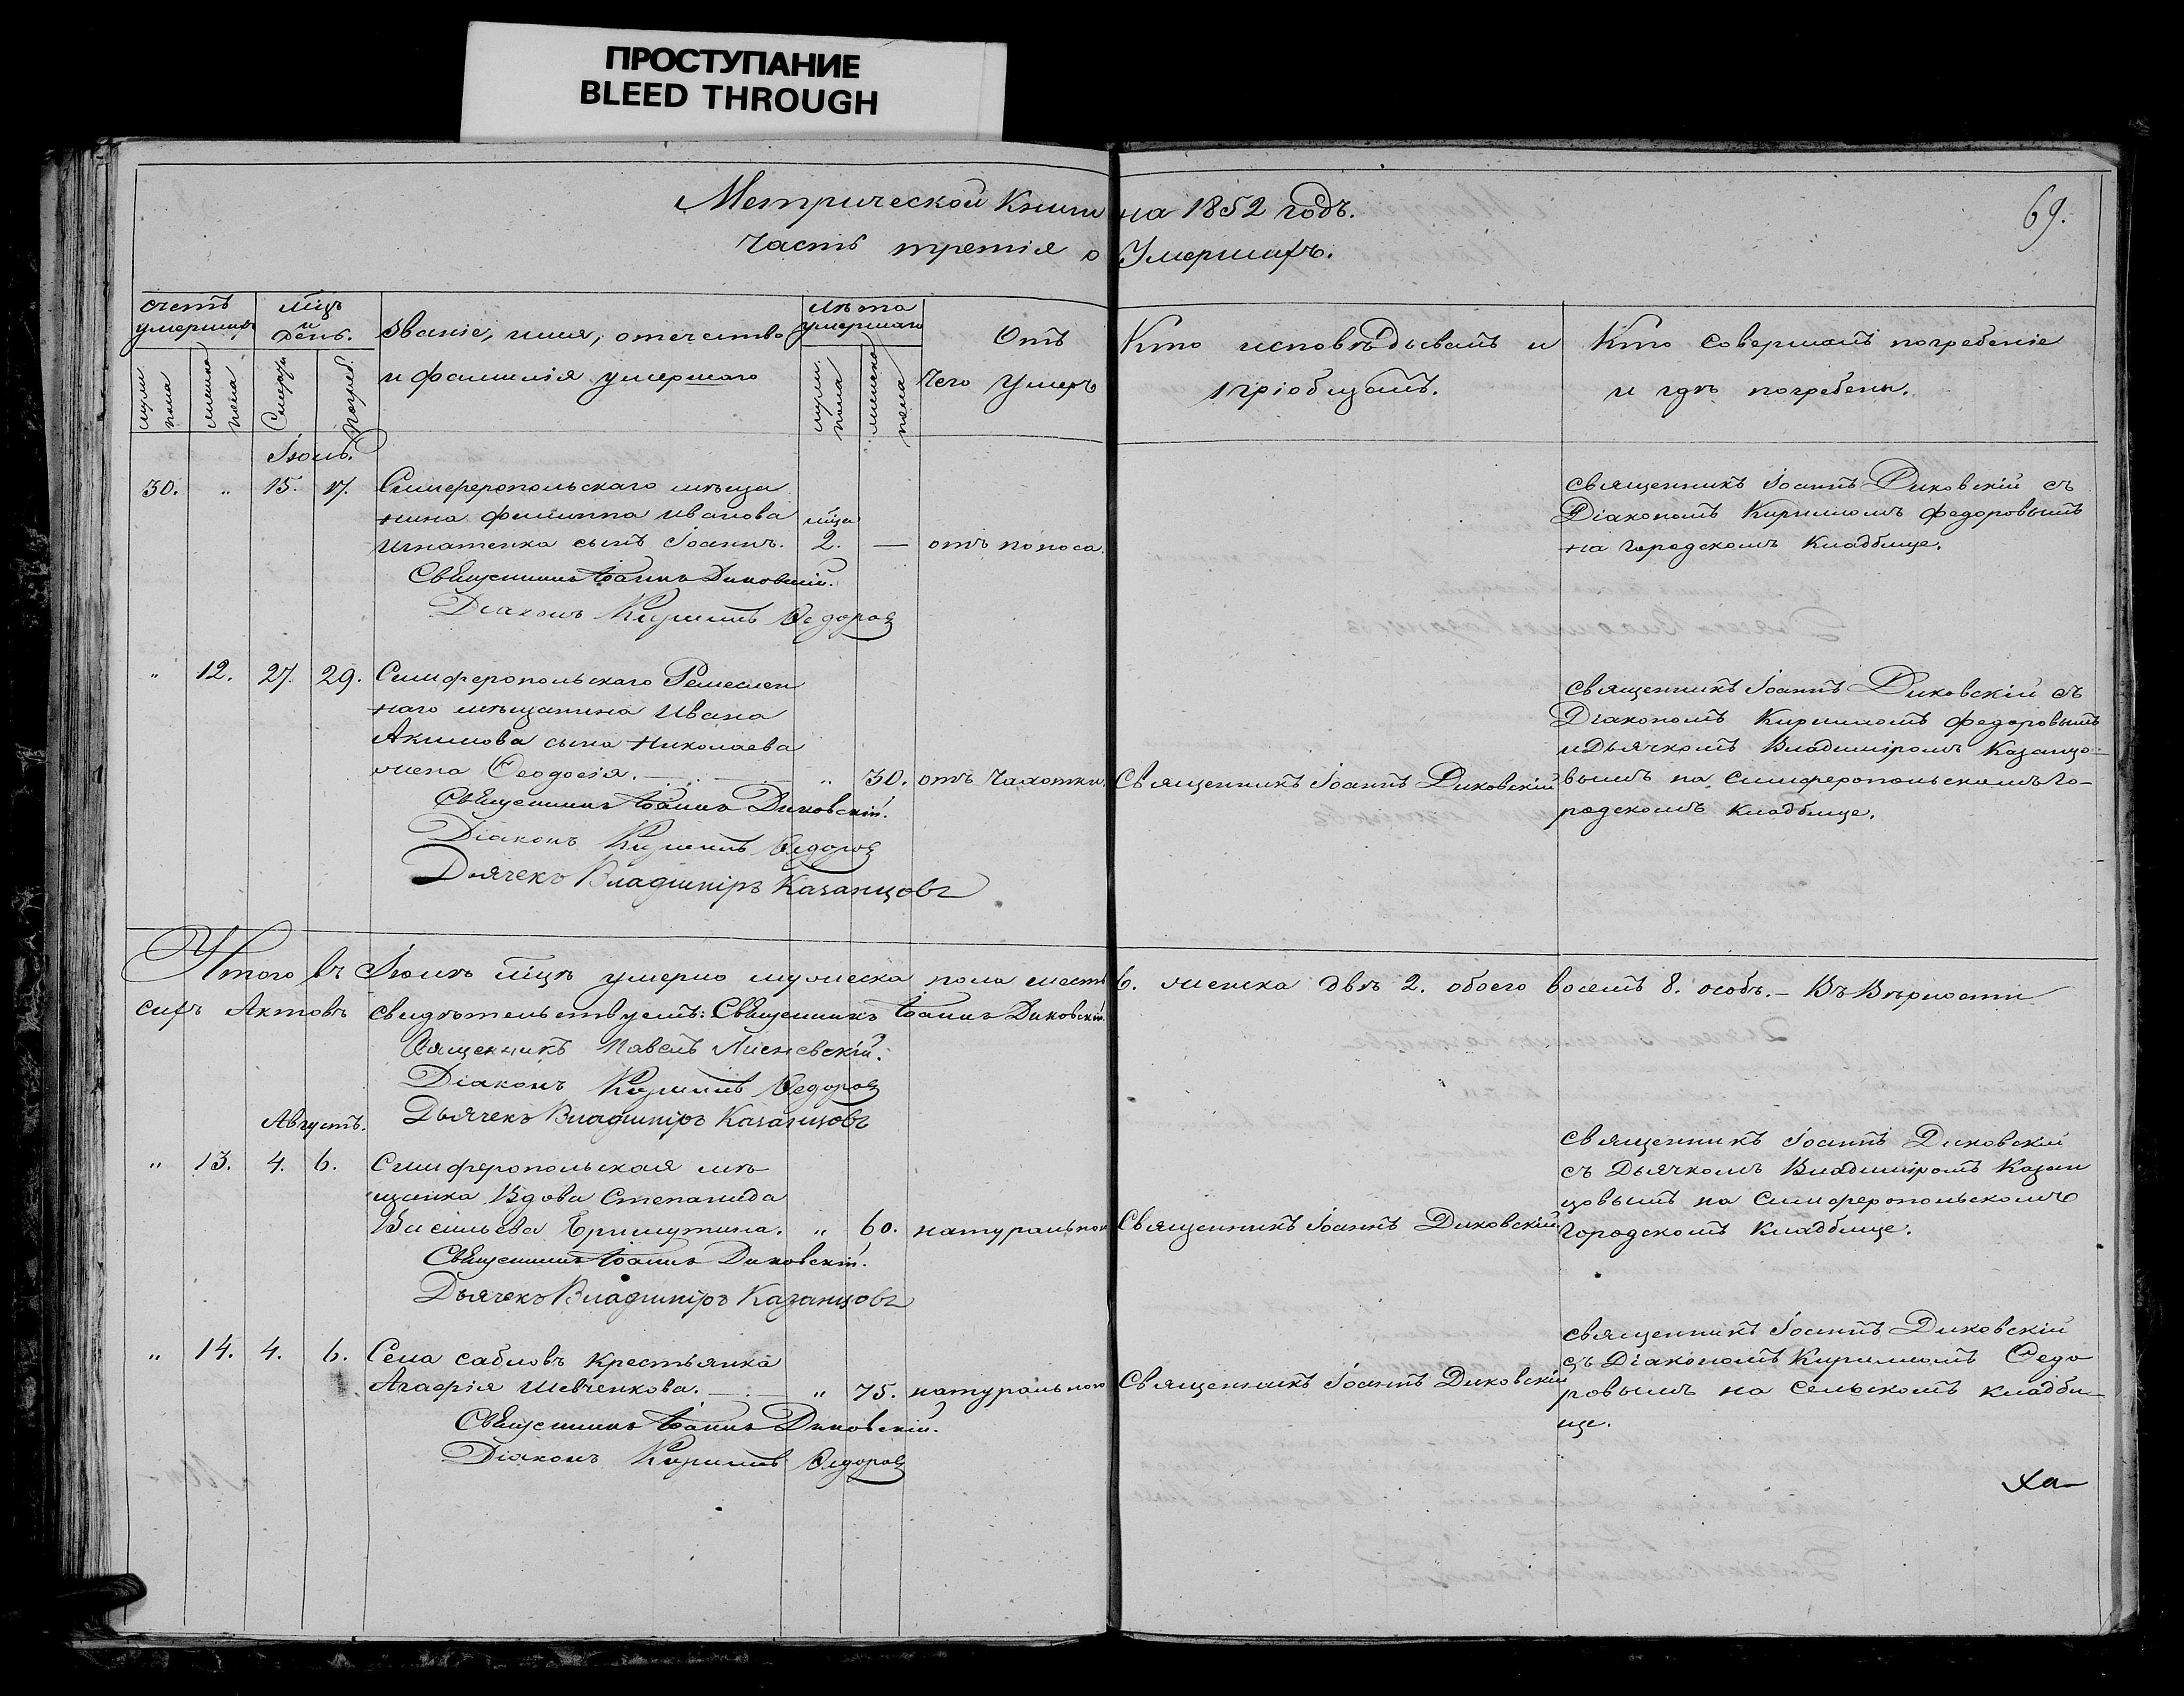 ПРОСТУПАНИЕ
BLEED THROUGH
Метрической книги на 1852 годъ.
69.
Часть третія о Умершихъ.
счетъ умершихъ
мцъ и день.
Званіе, имя, отечество
и фамилія умершаго
лѣта умершаго
Отъ
чего умеръ
Кто исповѣдывалъ и
пріобщалъ.
Кто совершалъ погребеніе
и гдѣ погребены.
муж. пола
женска пола
Смерть
Погреб.
муж. пола
женска пола
Іюль.
30. „ 15. 17. Симферопольскаго мѣща
нина филиппа иванова мца
игнатенка сынъ Іоаннъ. 2. — отъ поноса.
Священникъ Іоаннъ Диковскій.
Діаконъ Кириллъ Ѳедоровъ
священникъ Іоаннъ Диковскій съ
Діакономъ Кирилломъ федоровымъ
на городскомъ кладбище.
„ 12. 27. 29. Симферопольскаго Ремеслен
наго мѣщанина ивана
Акимова сына николаева
жена Ѳеодосія. — „ 30. отъ чахотки. Священникъ Іоаннъ Диковскій
Священникъ Іоаннъ Диковскій.
Діаконъ Кириллъ Ѳедоровъ
Дьячекъ Владиміръ Казанцовъ
священникъ Іоаннъ Диковскій съ
Діакономъ Кирилломъ федоровымъ
и Дьячкомъ Владиміромъ Казанцо-
вымъ на симферопольскомъ го-
родскомъ кладбище.
Итого въ Іюлѣ мцѣ умерло мужеска пола шесть 6. женска двѣ 2. обоего восемь 8. особъ. — Въ вѣрности
сихъ Актовъ свидѣтельствуемъ: Священникъ Іоаннъ Диковскій.
Священникъ Павелъ Лисневскій.
Діаконъ Кириллъ Ѳедоровъ
Дьячекъ Владиміръ Казанцовъ
Августъ.
„ 13. 4. 6. Симферопольская мѣ
щанка Вдова Степанида
Васильева „ 60. натуральною Священникъ Іоаннъ Диковскій.
Священникъ Іоаннъ Диковскій.
Дьячекъ Владиміръ Казанцовъ
священникъ Іоаннъ Диковскій
съ Дьячкомъ Владиміромъ Казан
цовымъ на Симферопольскомъ
городскомъ кладбище.
„ 14. 4. 6. Села сабловъ крестьянка
Агафія Шевченкова. — „ 75. натуральною Священникъ Іоаннъ Диковскій
Священникъ Іоаннъ Диковскій.
Діаконъ Кириллъ Ѳедоровъ
священникъ Іоаннъ Диковскій
съ Діакономъ Кирилломъ Ѳедо
ровымъ на сельскомъ кладби-
ще.